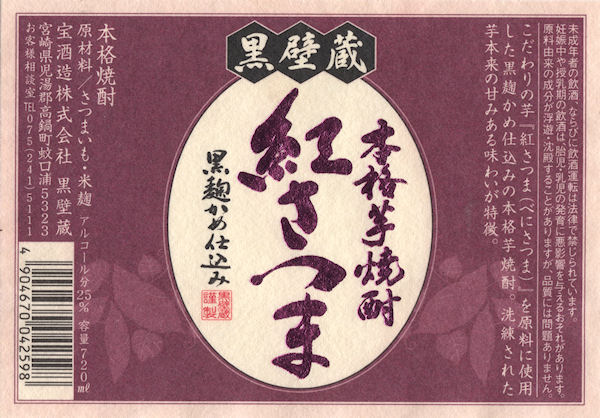 未成年者の飲酒、ならびに飲酒運転は法律で禁じられています。
妊娠中や授乳期の飲酒は、胎児・乳児の発育に悪影響を与えるおそれがあります。
原料由来の成分が浮遊・沈殿することがありますが、品質には問題ありません。
こだわりの芋『紅さつま(べにさつま)』を原料に使用
した黒麹かめ仕込みの本格芋焼酎。洗練された
芋本来の甘みある味わいが特徴。
黒壁蔵
本格芋焼酎
紅さつま
黒麹かめ仕込み
黒壁蔵
謹製
本格焼酎
原材料/さつまいも・米麹 アルコール分25% 容量720ml
宝酒造株式会社 黒壁蔵
宮崎県児湯郡高鍋町蚊口浦5323
お客様相談室TEL075(241)5111
4904670042598